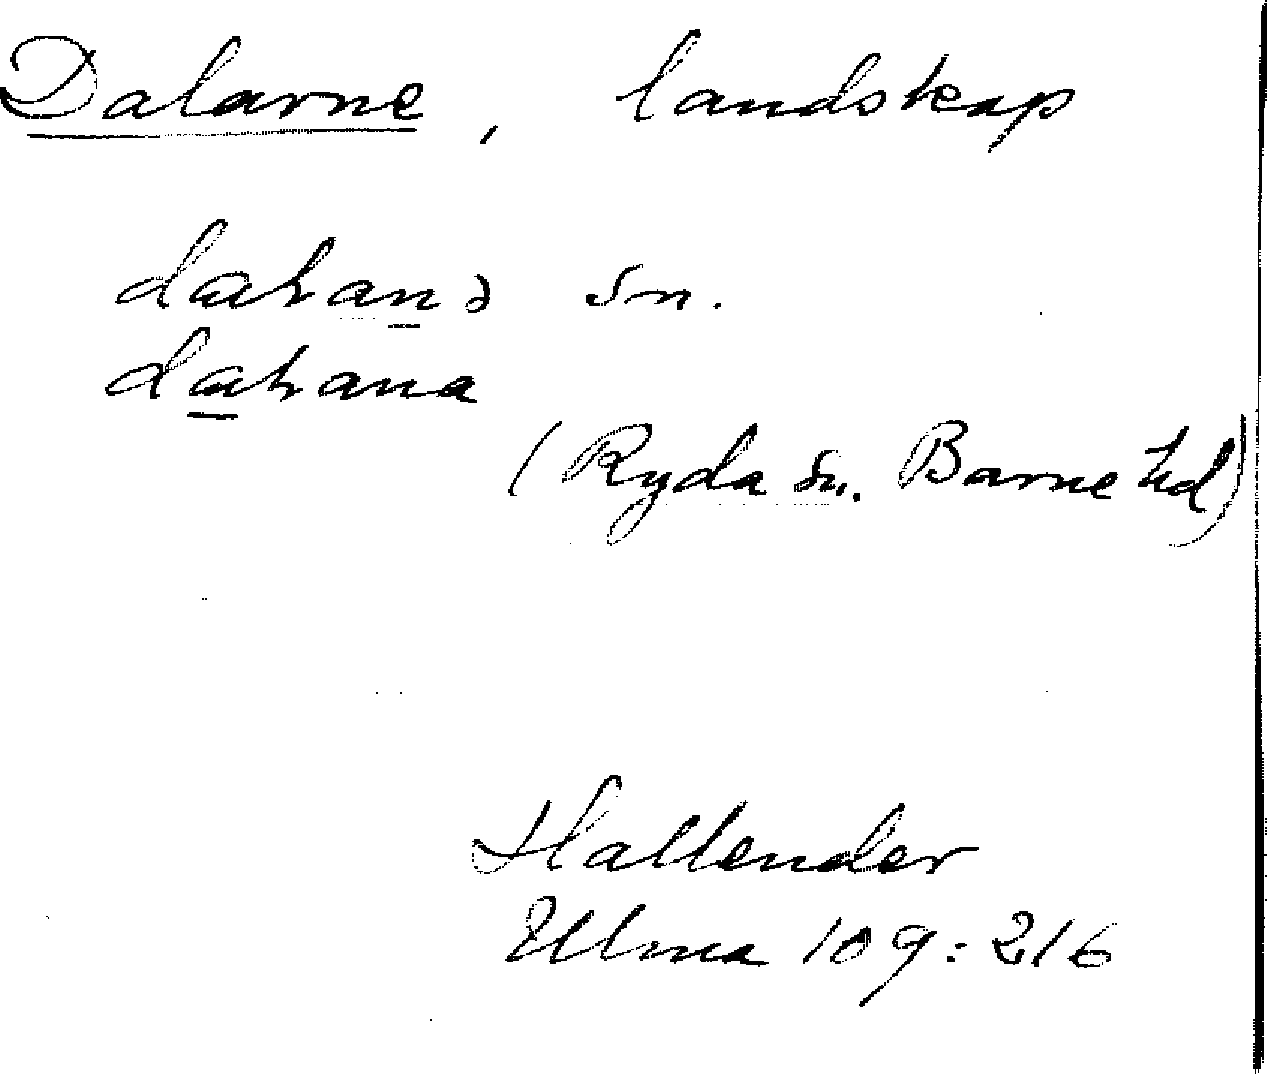 Dalarne, landskap
sn.
(Ryda sn. Barne hd)
Hallender
Ulma 109:216